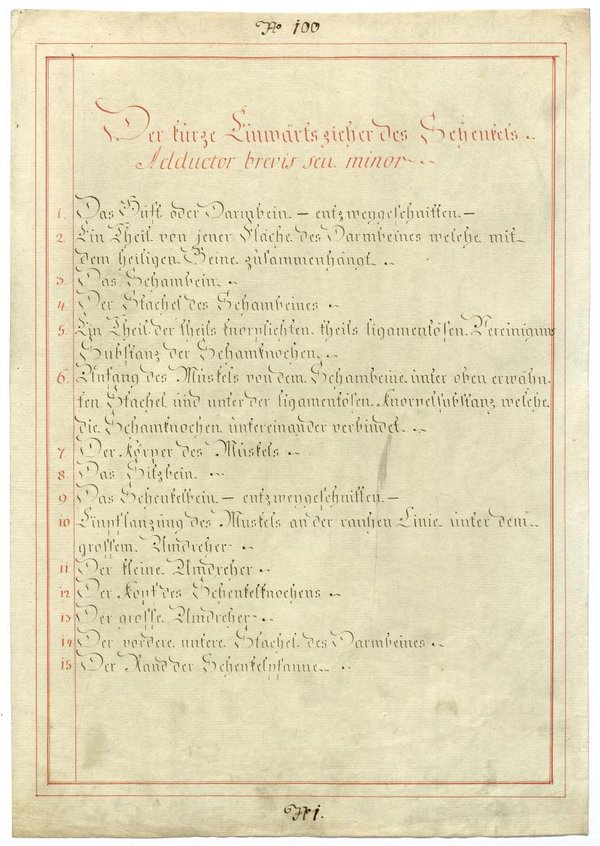 No 100
Der kürze Einwärtszieher des Schenkels.
Adductor brevis seu minor
1. Das Hüft oder Darmbein — entzweygeschnitten. —
2. Ein Theil von jener Fläche des Darmbeines welche mit
dem heiligen Beine zusammenhängt.
3. Das Schambein.
4. Der Stachel des Schambeines
5. Ein Theil der theils knorplichten theils ligamentösen Vereinigung
Substanz der Schamknochen.
6. Anfang des Muskels von dem Schambeine unter oben erwähn
ten Stachel und unter der ligamentösen Knorpelsubstanz welche
die Schamknochen untereinander verbindet.
7 Der Körper des Muskels
8 Das Sitzbein.
9 Das Schenkelbein — entzweygeschnitten —
10 Einpflanzung des Muskels an der rauhen Linie unter dem
grossem Umdreher
11 Der kleine Umdreher
12 Der Kopf des Schenkelknochens
13 Der grosse Umdreher
14 Der vordere untere Stachel des Darmbeines
15 Der Rand der Schenkelpfanne